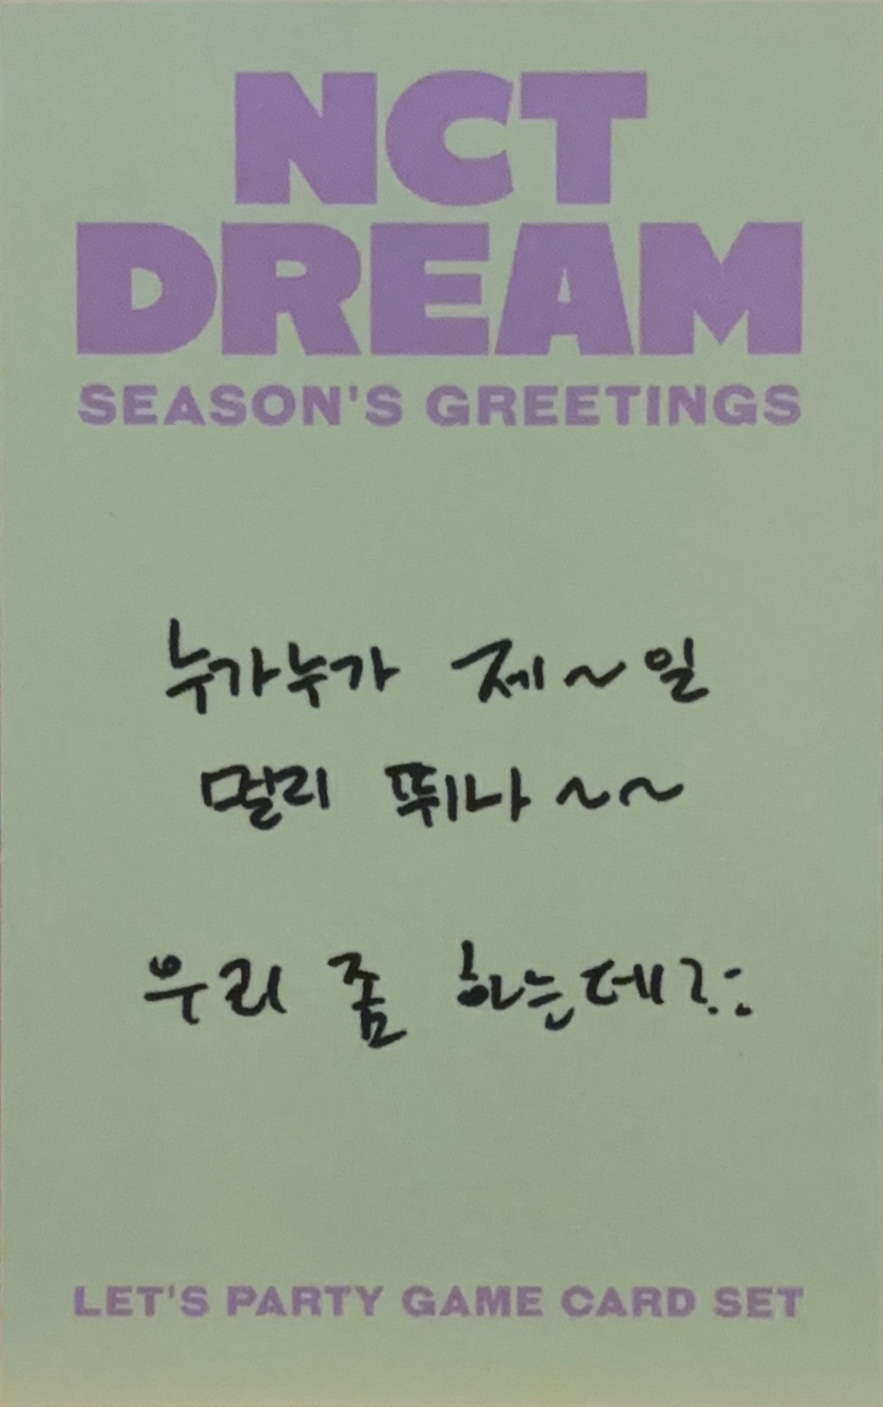 NCT
DREAM
SEASON'S GREETINGS
누가누가 제~일
멀리 뛰나~~
우리 좀 하는데?:
LET'S PARTY GAME CARD SET